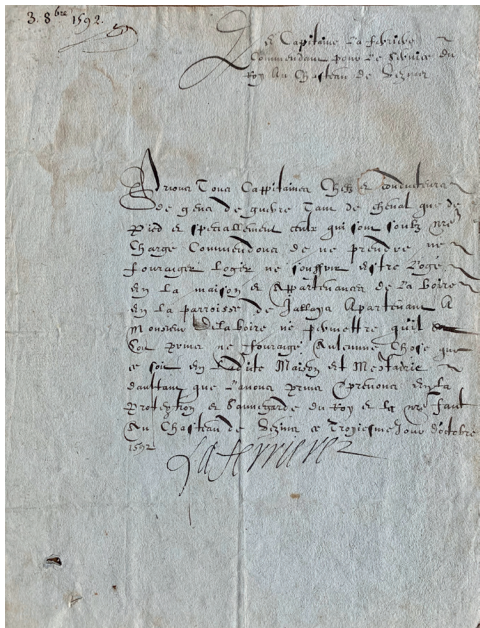 3. 8bre 1592.
Le Capitaine La ferriere
Commendant pour Le service du
Roy Au Chasteau de Vezins
Prions Tous Cappitaines Chefz et conducteurs
de gens de guerre Tant de cheval que de
Pied et speciallement ceulx qui sont soubz nre
Charge Commendons de ne prendre ne
fourraiger Loger ne souffrir estre Logé
En La maison et Appartenances de La boire
en La parroisse de Jallays Apartenant A
Monsieur delaboire ne permettre qu'il
soit prins ne fouragé Aulcunne Chose que
ce soit en Ladite Maison et Mestairie
daultant que L'avons prins et prenons en La
Protection et Sauvegarde du Roy et La nre faict
Au Chasteau de Vezins ce Troyiesme Jour d'octobre
1592
Laferriere